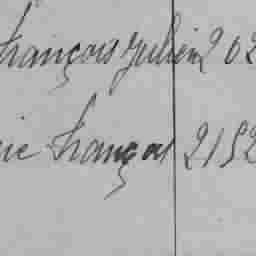 françois Julien 202
ie françois 2152